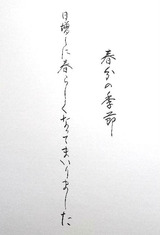 春分の季節
日増しに春らしくなってまいりました